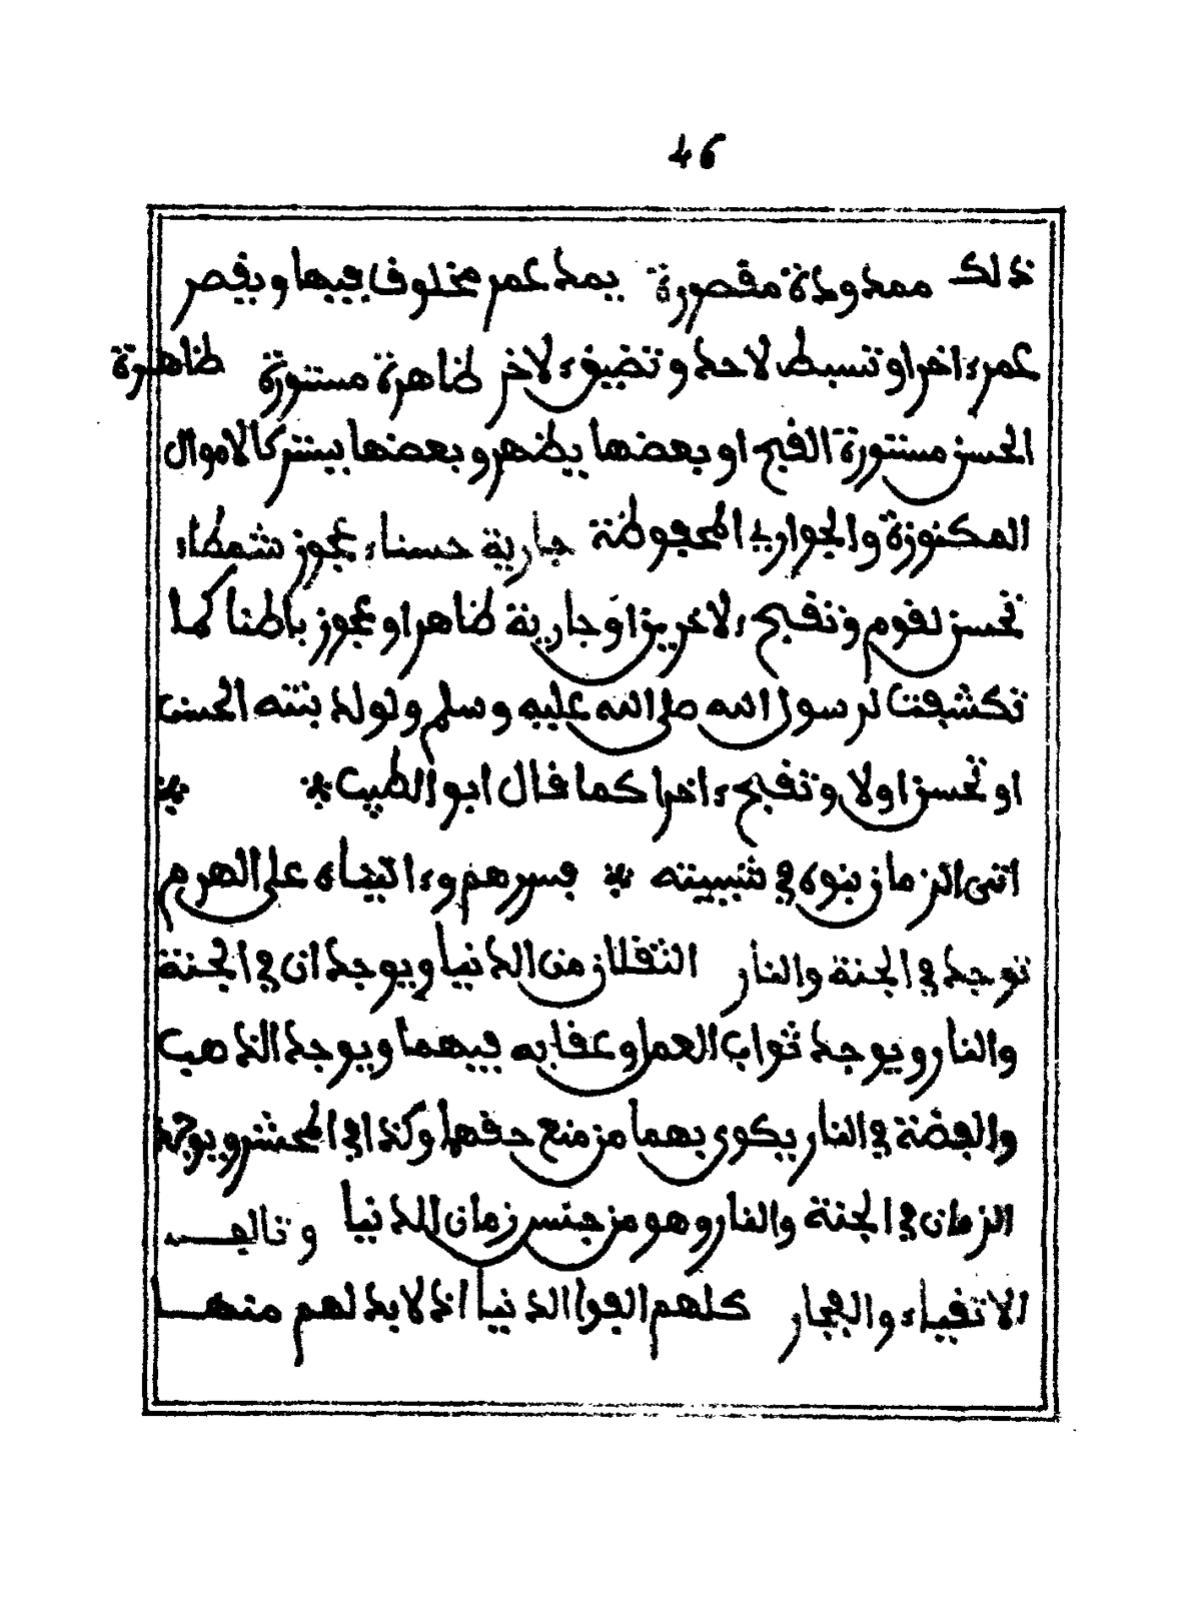 46
ذلك ممدودة مقصورة يمد عمر مخلوف فيها ويقصر
عمر ءاخر او تنبسط لاحد وتضيق ءلاخر ظاهرة مستورة ظاهرة
الحسن مستورة القبح او بعضها يظهر وبعضها يستتر كالاموال
المكنوزة والجواري المحفوظة جارية حسناء عجوز شمطاء
تحسن لقوم وتقبح ءلاخرين او جارية ظاهرا وعجوز باطنا كما
تكشفت لرسول الله صلى الله عليه وسلم ولولد بنته الحسن
او تحسن اولا وتقبح ءاخرا كما قال ابو الطيب * *
اتى الزمان بنوه في شبيبته * فسرهم وءاتيناه على الهرم
توجد في الجنة والنار الثقلان من الدنيا ويوجدان في الجنة
والنار ويوجد ثواب العمل وعقابه فيهما ويوجد الذهب
والفضة في النار يكوى بهما من منع حقهما وكذا في المحشر ويوجد
الزمان في الجنة والنار وهو من جنس زمان الدنيا وتالف
الاتقياء والفجار كلهم الفوا الدنيا اذ لا بد لهم منها